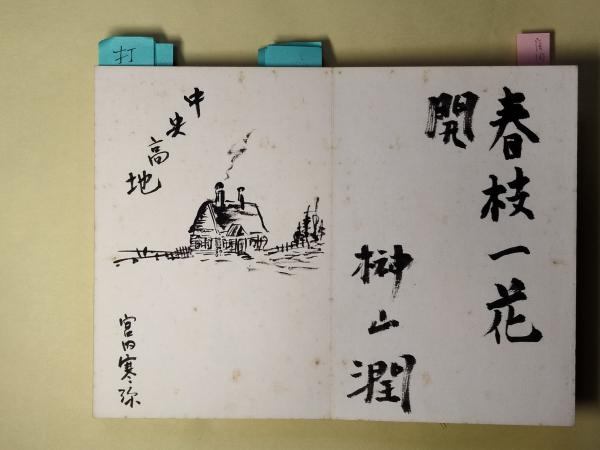 春枝一花
開
榊山潤
中央高地
宮内寒弥
打